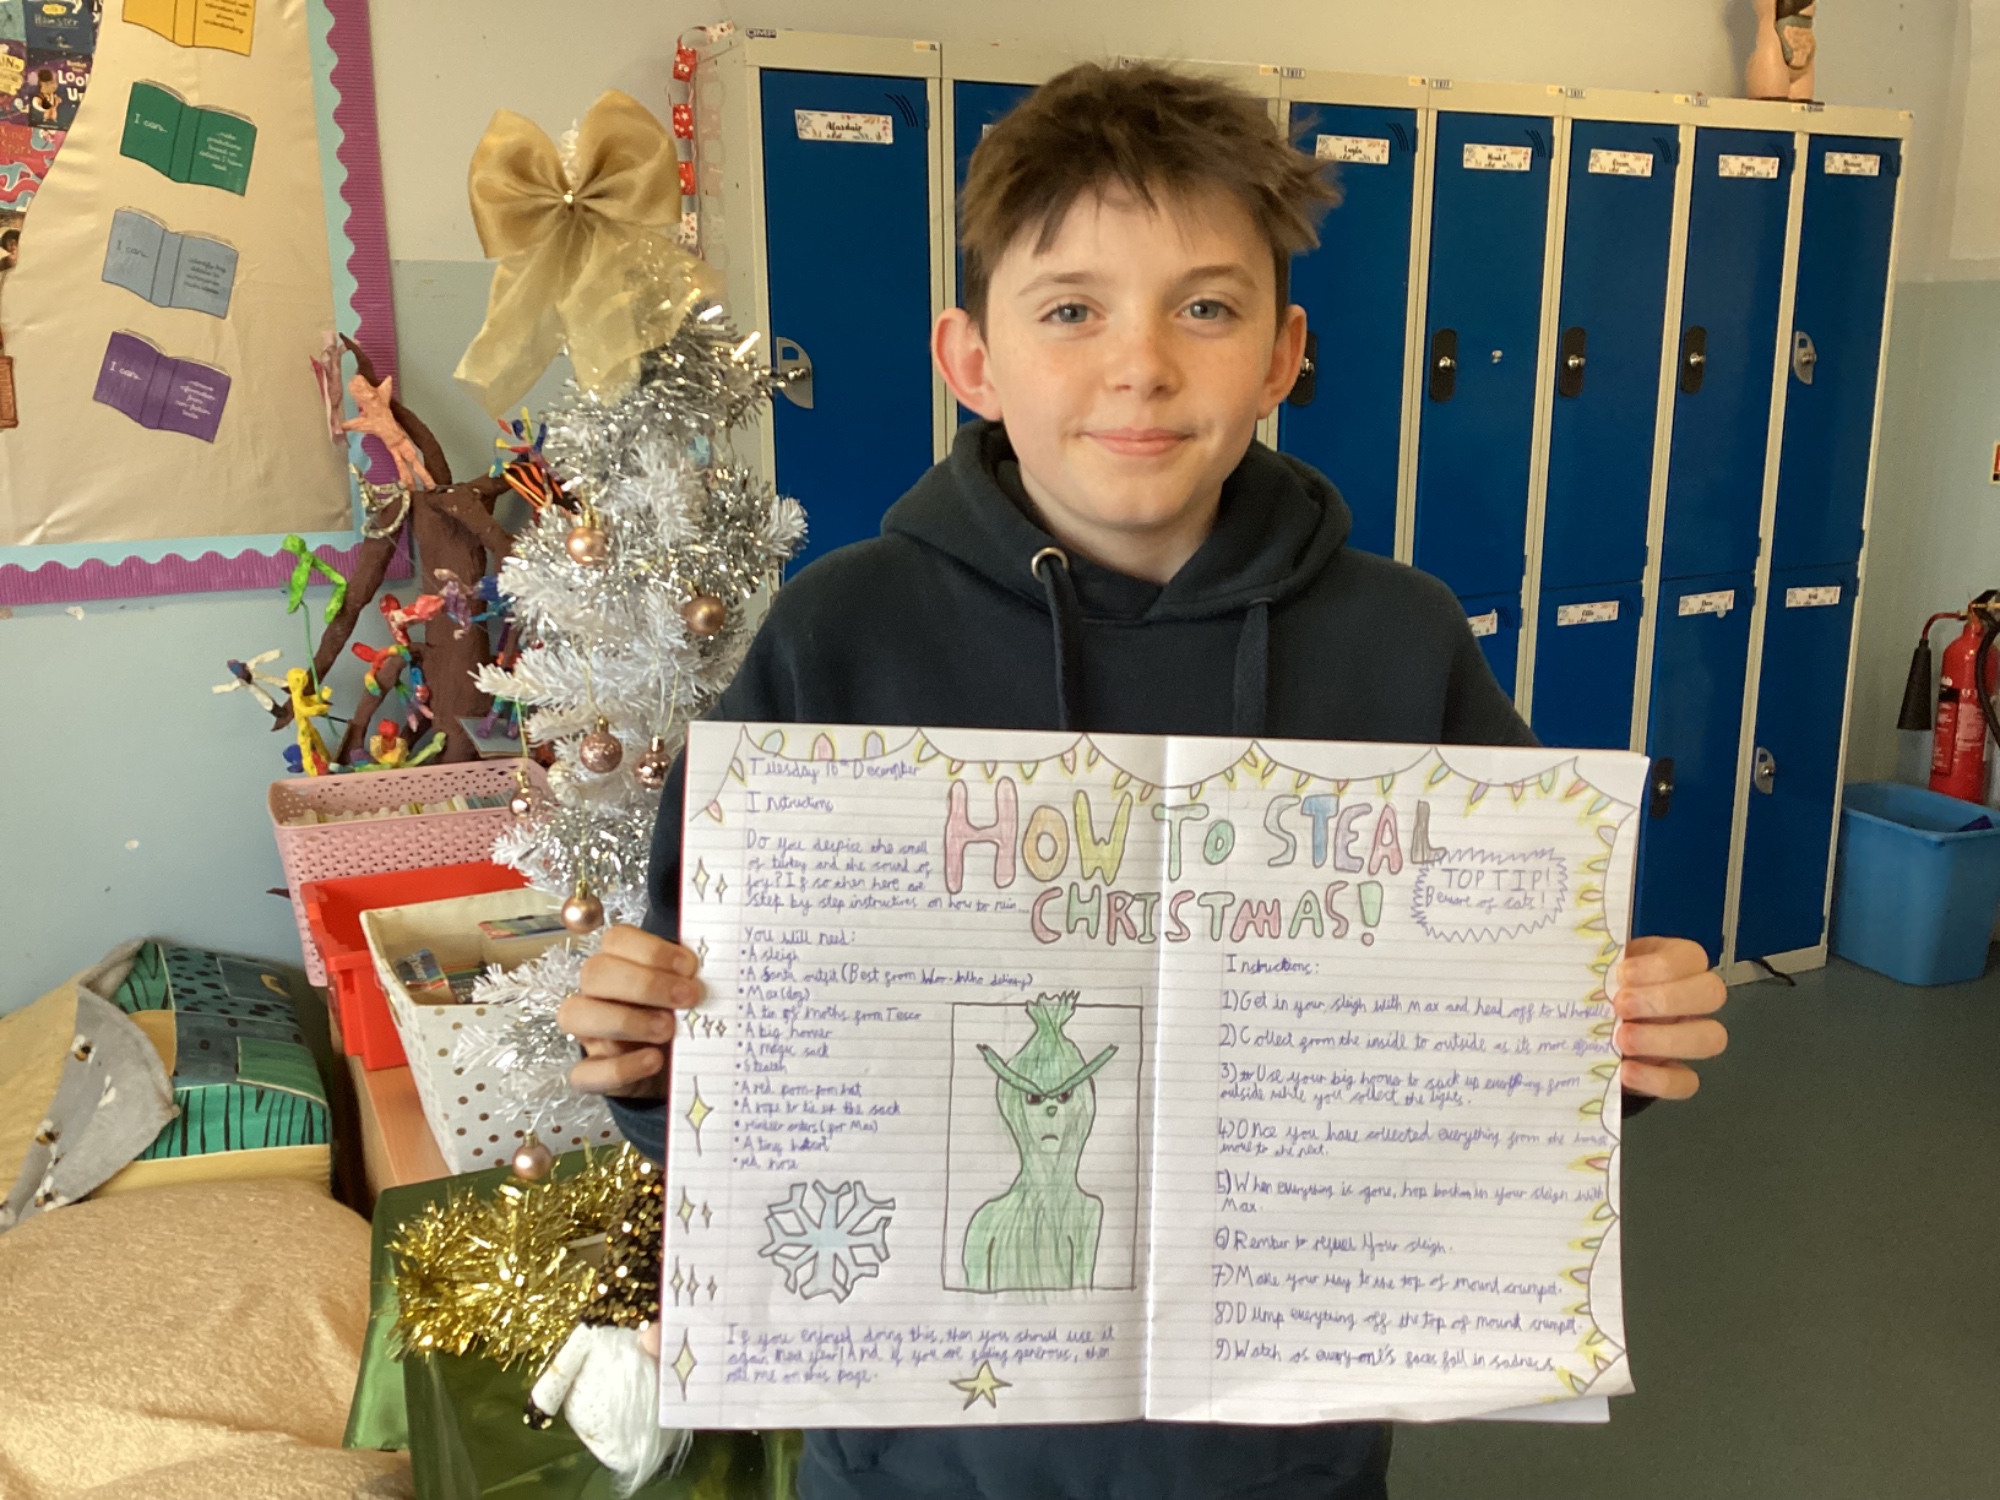 Tuesday 16th December
Intructions
HOW TO STEAL
CHRISTMAS!
Do you despise the smell
of turkey and the sound of
joy? If so then here are
step by step instructions on how to ruin...
TOP TIP!
Beware of cats!
You will need:
•A sleigh
•A Santa outfit (Best from Woo-Who delivery)
•Max (dog)
•A tin of moths from Tesco
•A big hoover
•A magic sack
•Stealth
•A red pom-pom hat
•A rope to tie up the sack
•reindeer anters (for Max)
•A tiny heart
•red nose
If you enjoyed doing this, then you should use it
again next year! And if you are feeling generous, then
rate me on this page.
Instructions:
1) Get in your sleigh with Max and head off to Whoville
2) Collect from the inside to outside as it's more efficient
3) Use your big hoover to suck up everything from
outside while you collect the lights.
4) Once you have collected everything from the house,
move to the next.
5) When everything is gone, hop back in your sleigh with
Max.
6) Rember to refuel your sleigh.
7) Make your way to the top of mound crumpet.
8) Dump everything off the top of mound crumpet.
9) Watch as everyone's faces fall in sadness
I can
I can
I can
Alasdair
Logan
Poppy